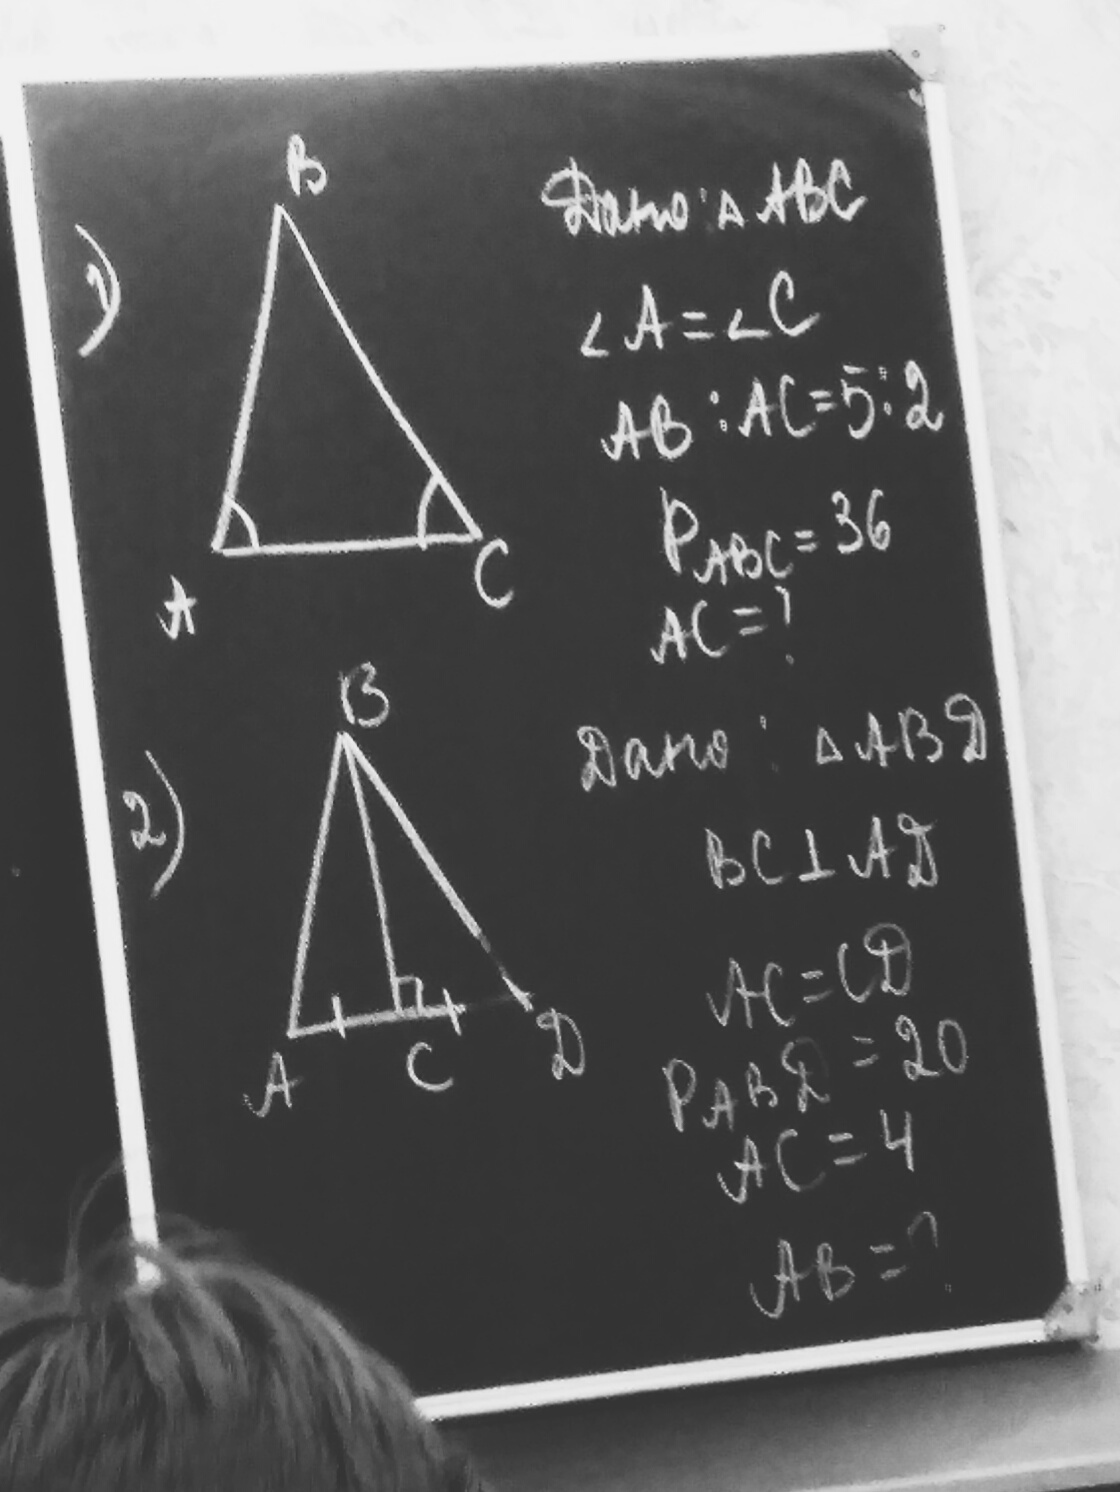 1)
B
A
C
Дано: △ABC
∠A=∠C
AB : AC=5:2
P_ABC=36
AC=?
2)
B
A
C
D
Дано: △ABD
BC⊥AD
AC=CD
P_ABD=20
AC=4
AB=?